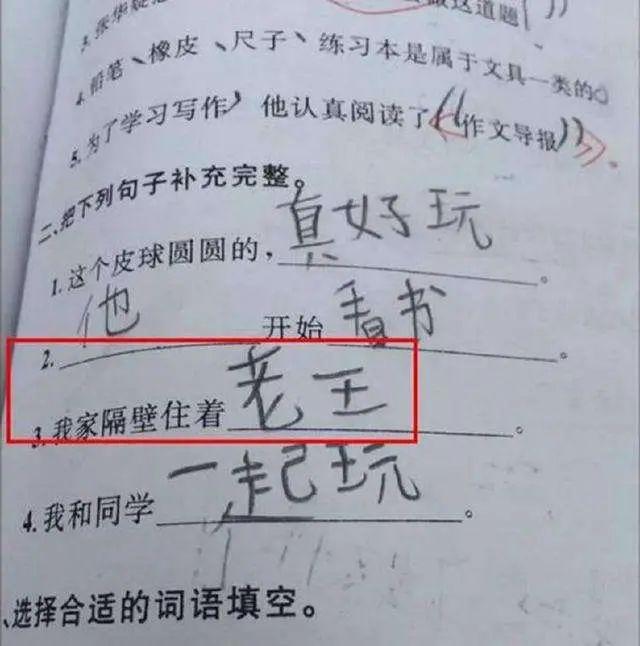 这道题
4.铅笔、橡皮、尺子、练习本是属于文具一类的。
5.为了学习写作,他认真阅读了《作文导报》。
二、把下列句子补充完整。
1.这个皮球圆圆的,真好玩。
2.他开始看书。
3.我家隔壁住着老王。
4.我和同学一起玩。
、选择合适的词语填空。